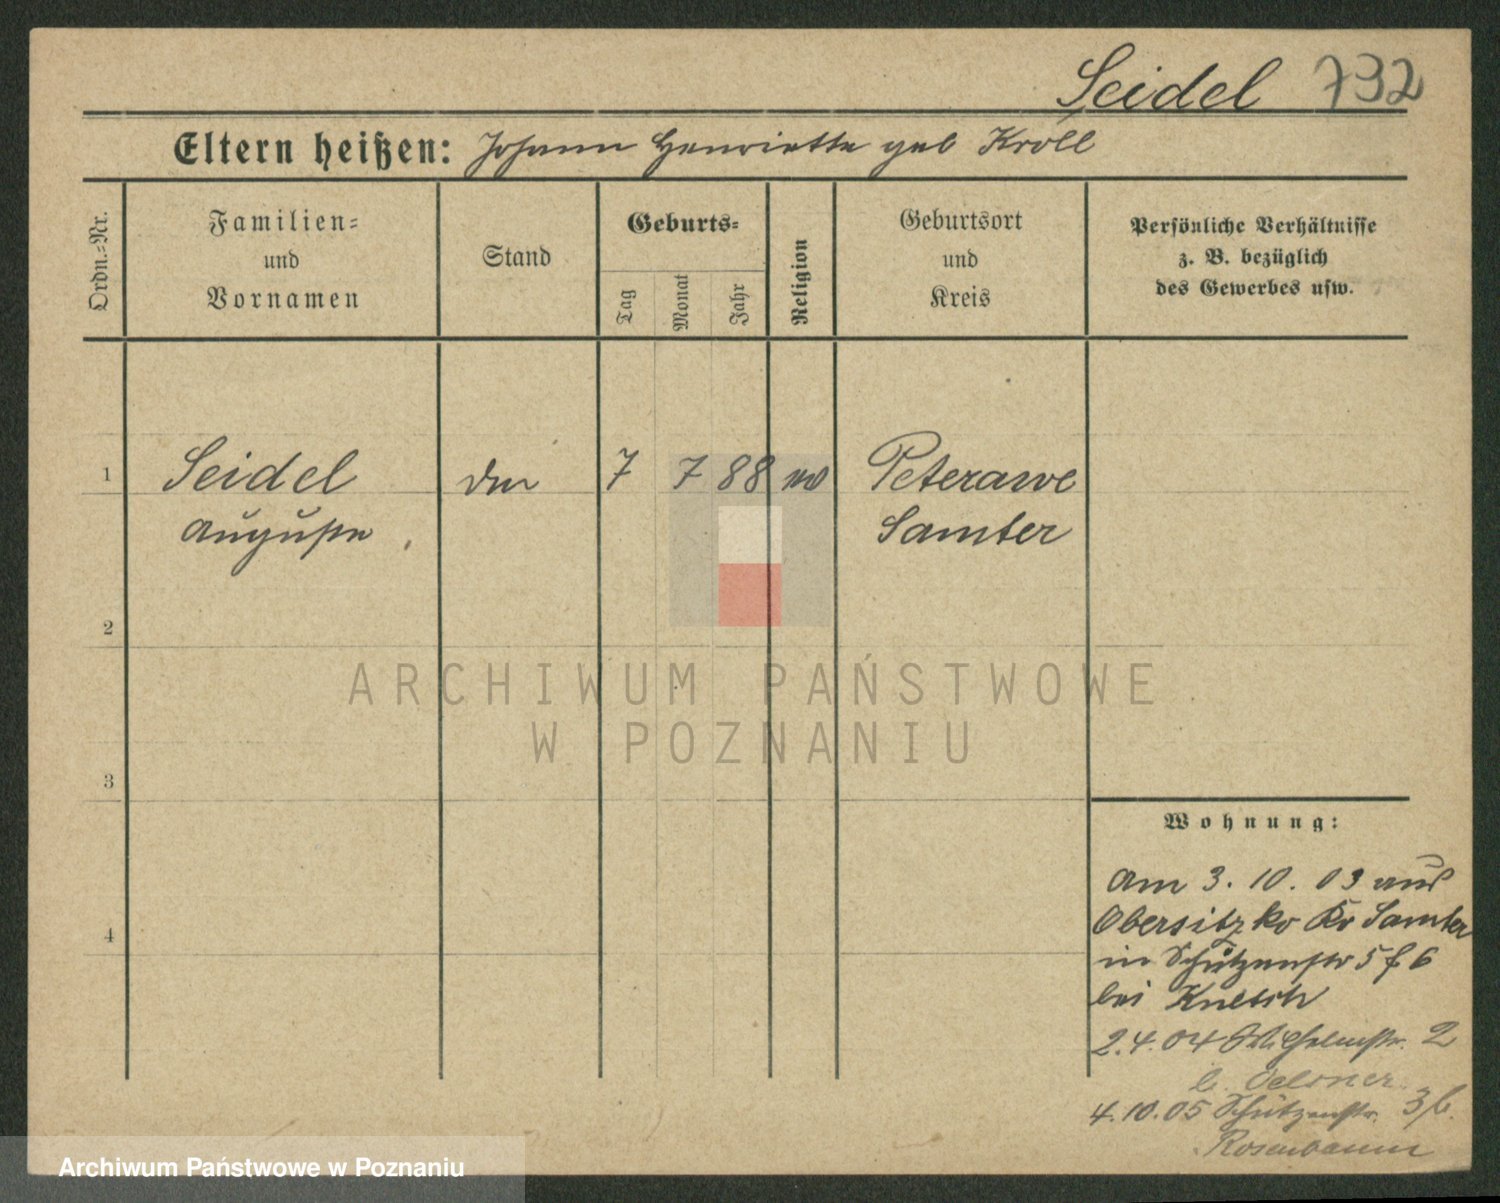 Seidel 732
Eltern heißen: Johann Henriette geb Kroll
Ordn.-Nr.
Familien-
und
Vornamen
Stand
Geburts-
Tag
Monat
Jahr
Religion
Geburtsort
und
Kreis
Persönliche Verhältnisse
z. B. bezüglich
des Gewerbes usw.
1
Seidel
Auguste
7 7 88
Peterawe
Samter
2
3
4
ARCHIWUM PAŃSTWOWE
W POZNANIU
Wohnung:
Am 3. 10. 03 aus
Obersitzko Kr Samter
in Schützenstr 5
bei
2.4.04 Wilhelmstr. 2
b. Oelsner
4.10.05 Schützenstr.
Rosenbaum
Archiwum Państwowe w Poznaniu